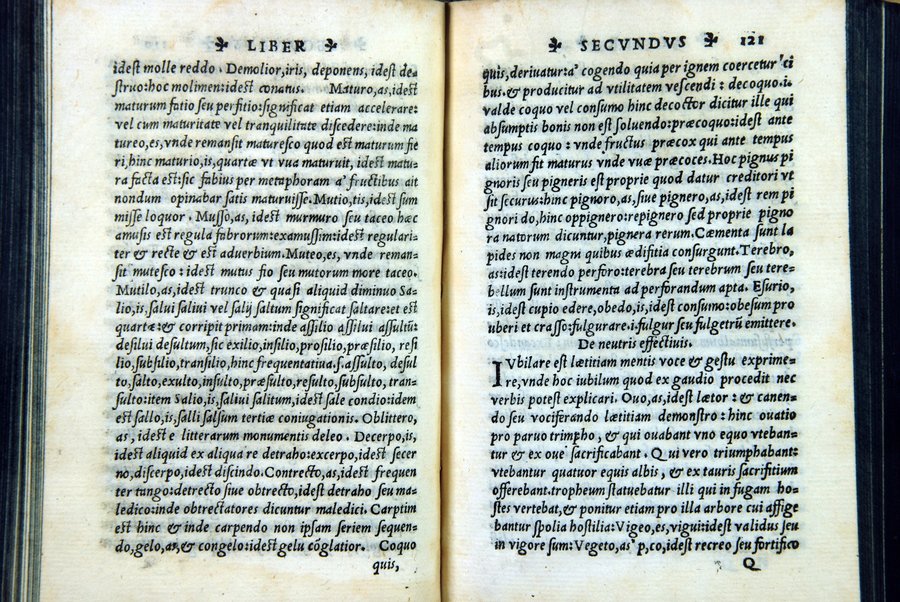 LIBER
idest molle reddo. Demolior,iris, deponens, idest de=
struo:hoc molimen:idest conatus. Maturo,as,idest
maturum facio seu perfitio:significat etiam accelerare:
vel cum maturitate vel tranquilitate discedere:inde ma
tureo,es,vnde remansit maturesco quod est maturum fie
ri,hinc maturio,is,quartæ vt vua maturuit, idest matu=
ra facta est:sic fabius per metaphoram a' fructibus ait
nondum opinabar satis maturuisse. Mutio,tis,idest sum
misse loquor. Musso,as, idest murmuro seu taceo hæc
amussis est regula fabrorum:examussim:idest regulari=
ter & recte & est aduerbium. Muteo,es, vnde reman=
sit mutesco: idest mutus fio seu mutorum more taceo.
Mutilo,as,idest trunco & quasi aliquid diminuo Sa=
lio,is,salui saliui vel salij saltum significat saltare:et est
quartæ:& corripit primam:inde assilio assilui assultū:
desilui desultum,sic exilio,insilio,prosilio,præsilio, resi
lio,subsilio,transilio,hinc frequentatiua.s.assulto, desul
to,salto,exulto,insulto,præsulto,resulto,subsulto, tran=
sulto:item Salio,is,saliui salitum,idest sale condio:idem
est sallo,is,salli salsum tertiæ coniugationis. Oblittero,
as, idest e litterarum monumentis deleo. Decerpo,is,
idest aliquid ex aliqua re detraho:excerpo,idest secer
no,discerpo,idest discindo. Contrecto,as,idest frequen
ter tango:detrecto siue obtrecto,idest detraho seu ma=
ledico:inde obtrectatores dicuntur maledici. Carptim
est hinc & inde carpendo non ipsam seriem sequen=
do,gelo,as,& congelo:idest gelu cōglatior. Coquo
quis,
SECVNDVS 121
quis,deriuatur:a' cogendo quia per ignem coercetur ci
bus.& producitur ad vtilitatem vescendi: decoquo.i.
valde coquo vel consumo hinc decoctor dicitur ille qui
absumptis bonis non est soluendo:præcoquo:idest ante
tempus coquo: vnde fructus præcox qui ante tempus
aliorum fit maturus vnde vuæ præcoces.Hoc pignus pi
gnoris seu pigneris est proprie quod datur creditori vt
sit securus:hinc pignoro,as,siue pignero,as,idest rem pi
gnori do,hinc oppignero:repignero sed proprie pigno
ra natorum dicuntur,pignera rerum. Cæmenta sunt la
pides non magni quibus ædifitia consurgunt.Terebro,
as:idest terendo perforo:terebra seu terebrum seu tere=
bellum sunt instrumenta ad perforandum apta. Esurio,
is,idest cupio edere,obedo,is,idest consumo:obesum pro
uberi et crasso:fulgurare.i.fulgur seu fulgetrū emittere.
De neutris effectiuis.
IVbilare est lætitiam mentis voce & gestu exprime=
re,vnde hoc iubilum quod ex gaudio procedit nec
verbis potest explicari. Ouo,as,idest lætor: & canen=
do seu vociferando lætitiam demonstro: hinc ouatio
pro paruo trimpho, & qui ouabant vno equo vteban=
tur & ex oue sacrificabant. Qui vero triumphabant:
vtebantur quatuor equis albis, & ex tauris sacrifitium
offerebant.tropheum statuebatur illi qui in fugam ho=
stes vertebat,& ponitur etiam pro illa arbore cui affige
bantur spolia hostilia:Vigeo,es,vigui:idest validus seu
in vigore sum:Vegeto,as' p,co,idest recreo seu fortifico
Q